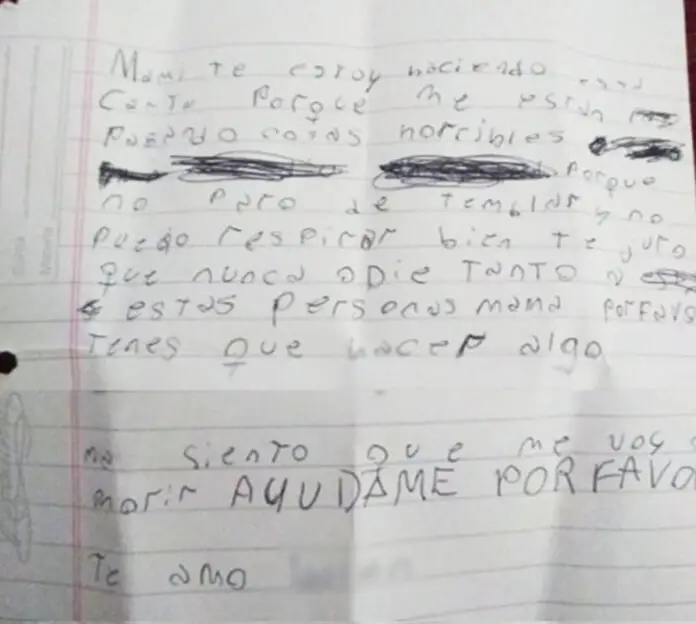 Mami te estoy haciendo esta
Carta Porque me están
Pasando cosas horribles
Porque
no Paro de Temblar y no
Puedo respirar bien Te juro
que nunca odie TANTO a
estas personas mama PORFAVO
Tenes que hacer algo
me siento que me voy a
morir AYUDAME POR FAVO
Te amo